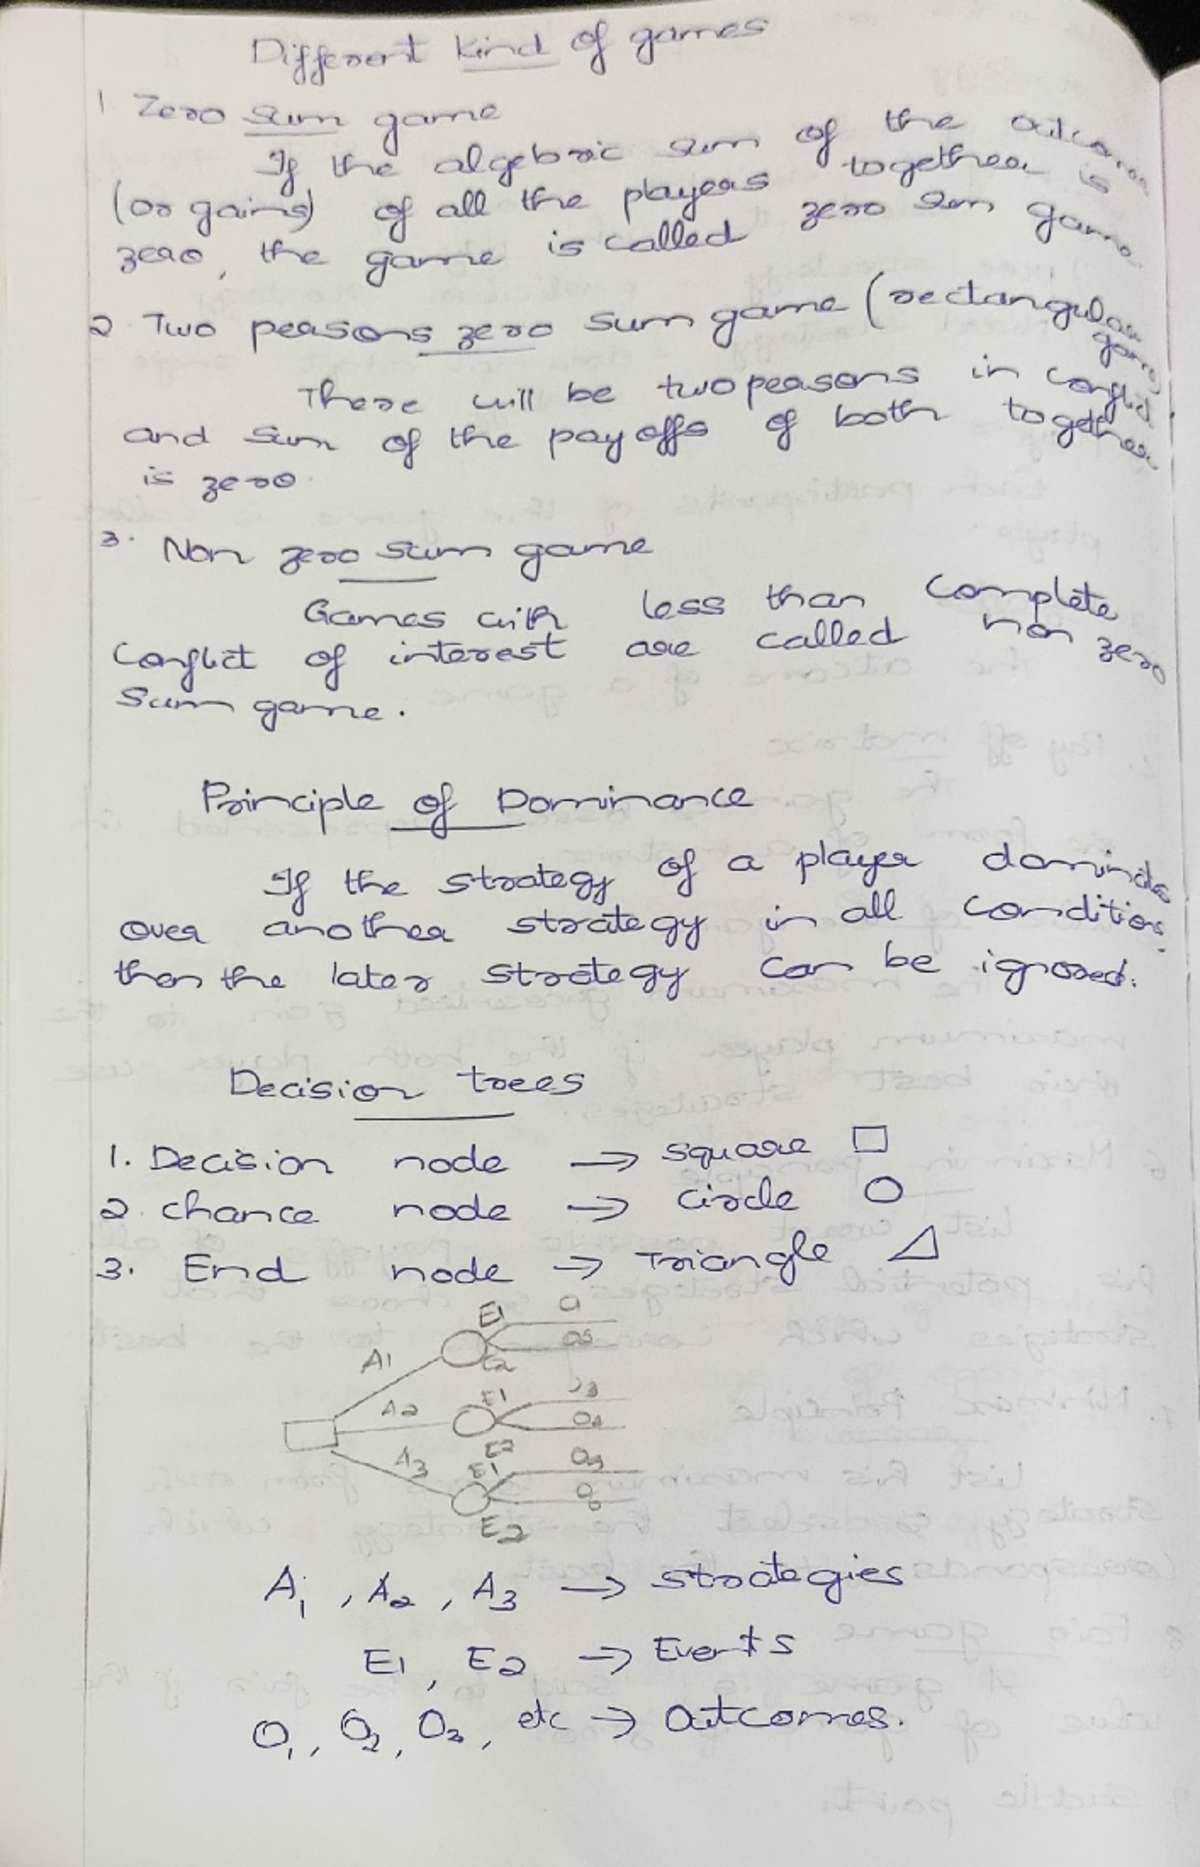 Different kind of games
1. Zero sum game
If the algebraic sum of the outcomes
(or gains) of all the players together is
zero, the game is called zero sum game
2. Two persons zero sum game (rectangular
game)
There will be two persons in conflict
and sum of the pay offs of both together
is zero.
3. Non zero sum game
Games with less than complete
conflict of interest are called non zero
sum game.
Principle of Dominance
If the strategy of a player dominates
over another strategy in all conditions
then the later strategy can be ignored.
Decision trees
1. Decision node → square □
2. chance node → circle ○
3. End node → Triangle △
E1
A1
E2
E1
A2
E2
A3
E1
E2
A1, A2, A3 → strategies
E1, E2 → Events
O1, O2, O3, etc → Outcomes.